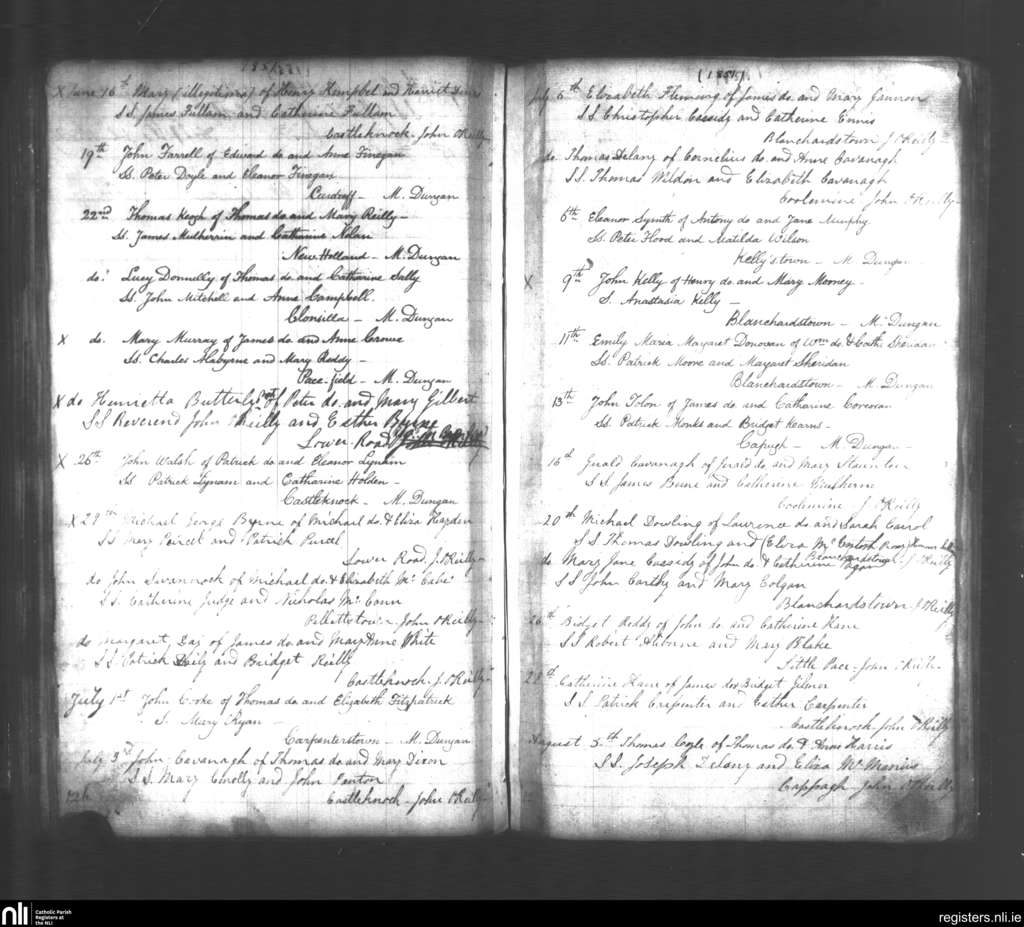 (1851)
X June 16th Mary (illegitimate) of Henry Kempbel and Harriet
S.S. James Fullam and Catherine Fullam
Castleknock. John O'Reilly
19th John Farrell of Edward do and Anne Finegan
Ss. Peter Doyle and Eleanor Finegan
M. Dungan
22nd Thomas Keogh of Thomas do and Mary Reilly -
Ss. James Mulherrin and Catharine Nolan
New Holland - M. Dungan
do. Lucy Donnelly of Thomas do and Catharine Sally
Ss. John Mitchell and Anne Campbell.
Clonsilla - M. Dungan
X do. Mary Murray of James do and Anne Crowe
Ss. Charles and Mary Reddy -
Pace-field - M. Dungan
X do Henrietta Butterly of Peter do and Mary Gilbert
S.S Reverend John O'Reilly and Esther Byrne
Lower Road
X 26th John Walsh of Patrick do and Eleanor Lynam
Ss Patrick Lynam and Catharine Holden -
Castleknock - M. Dungan
X 29th Michael George Byrne of Michael do & Eliza Harden
S.S Mary Purcel and Patrick Purcel
Lower Road J. O'Reilly
do John of Michael do & Elizabeth Mc Cabe
S.S. Catherine Judge and Nicholas Mc Cann
Pellettstown John O'Reilly
do Margaret Day of James do and Mary Anne White
S.S Patrick Daily and Bridget Reilly
Castleknock J. O'Reilly
July 1st John Cooke of Thomas do and Elizabeth Fitzpatrick
S. Mary Ryan -
Carpenterstown - M. Dungan
July 3rd John Cavanagh of Thomas do and Mary Dixon
S.S. Mary Emolly and John Fenton
Castleknock - John O'Reilly
(1851).
July 6th Elizabeth Fleming of James do and Mary Gannon
S.S Christopher Cassidy and Catherine Ennis
Blanchardstown J. O'Reilly
do. Thomas Delany of Cornelius do and Anne Cavanagh
S.S. Thomas Wildon and Elizabeth Cavanagh
Coolemine John O'Reilly
6th Eleanor Symth of Antony do and Jane Murphy
Ss. Peter Flood and Matilda Wilson
Kelly'stown - M. Dungan
X 9th John Kelly of Henry do and Mary Mooney -
S. Anastasia Kelly -
Blanchardstown - M. Dungan
11th Emily Maria Margaret Donovan of Wm do & Cathe Sheridan
Ss. Patrick Moore and Margaret Sheridan
Blanchardstown - M. Dungan
13th John Tolon of James do and Catharine Corcoran
Ss. Patrick Monks and Bridget Kearns -
Capugh - M. Dungan -
16th Gerald Cavanagh of Gerald do and Mary Staunton
S.S James Beine and Catherine
Coolemine J. O'Reilly
20th Michael Dowling of Laurence do and Sarah Carrol
S.S Thomas Dowling and Eliza Mc Centosh
Blanchardstown J. O'Reilly
do Mary Jane Cassidy of John do & Catherine Fagan
S.S John Carthy and Mary Colgan
Blanchardstown J. O'Reilly
26th Bridget Reddy of John do and Catherine Kane
S.S Robert and Mary Blake
Little Pace - John O'Reilly
28th Catherine of James do & Bridget Gilmer
S.S Patrick Carpenter and Esther Carpenter
Castleknock John O'Reilly
August 3th Thomas Coyle of Thomas do & Anne Harris
S.S. Joseph Delany and Eliza Mc Manus
Cappagh John O'Reilly
nli Catholic Parish
Registers at
the NLI
registers.nli.ie